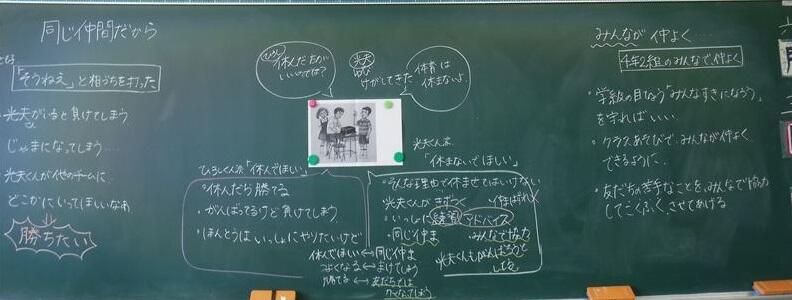 同じ仲間だから
「そうねえ」と相づちを打った
光夫がいると負けてしまう
じゃまになってしまう…
光夫くんが他のチームに
どこかにいってほしいなあ
勝ちたい
ひろし
休んだ方が
いいのでは?
光夫
けがしてきた
体育は
休まないよ
ひろしくんは「休んでほしい」
・休んだら勝てる
・がんばってるけど負けてしまう
・ほんとうはいっしょにやりたいけど
光夫くんは
「休まないでほしい」
・そんな理由で休ませてはいけない
光夫くんがきずつく
・いっしょに練習 アドバイス
・同じ仲ま
・みんなで協力
光夫くんもがんばろうと
してる
休んでほしい⟷同じ仲ま
つよくなる⟷まけてしまう
勝てる⟷友だちでは
なくなってしまう
みんなが仲よく
4年2組のみんなで仲よく
・学級の目ひょう「みんなすきになろう」
を守ればいい
・クラスあそびで、みんなが仲よく
できるように、
・友だちの苦手なことを、みんなで協力
してこくふくさせてあげる